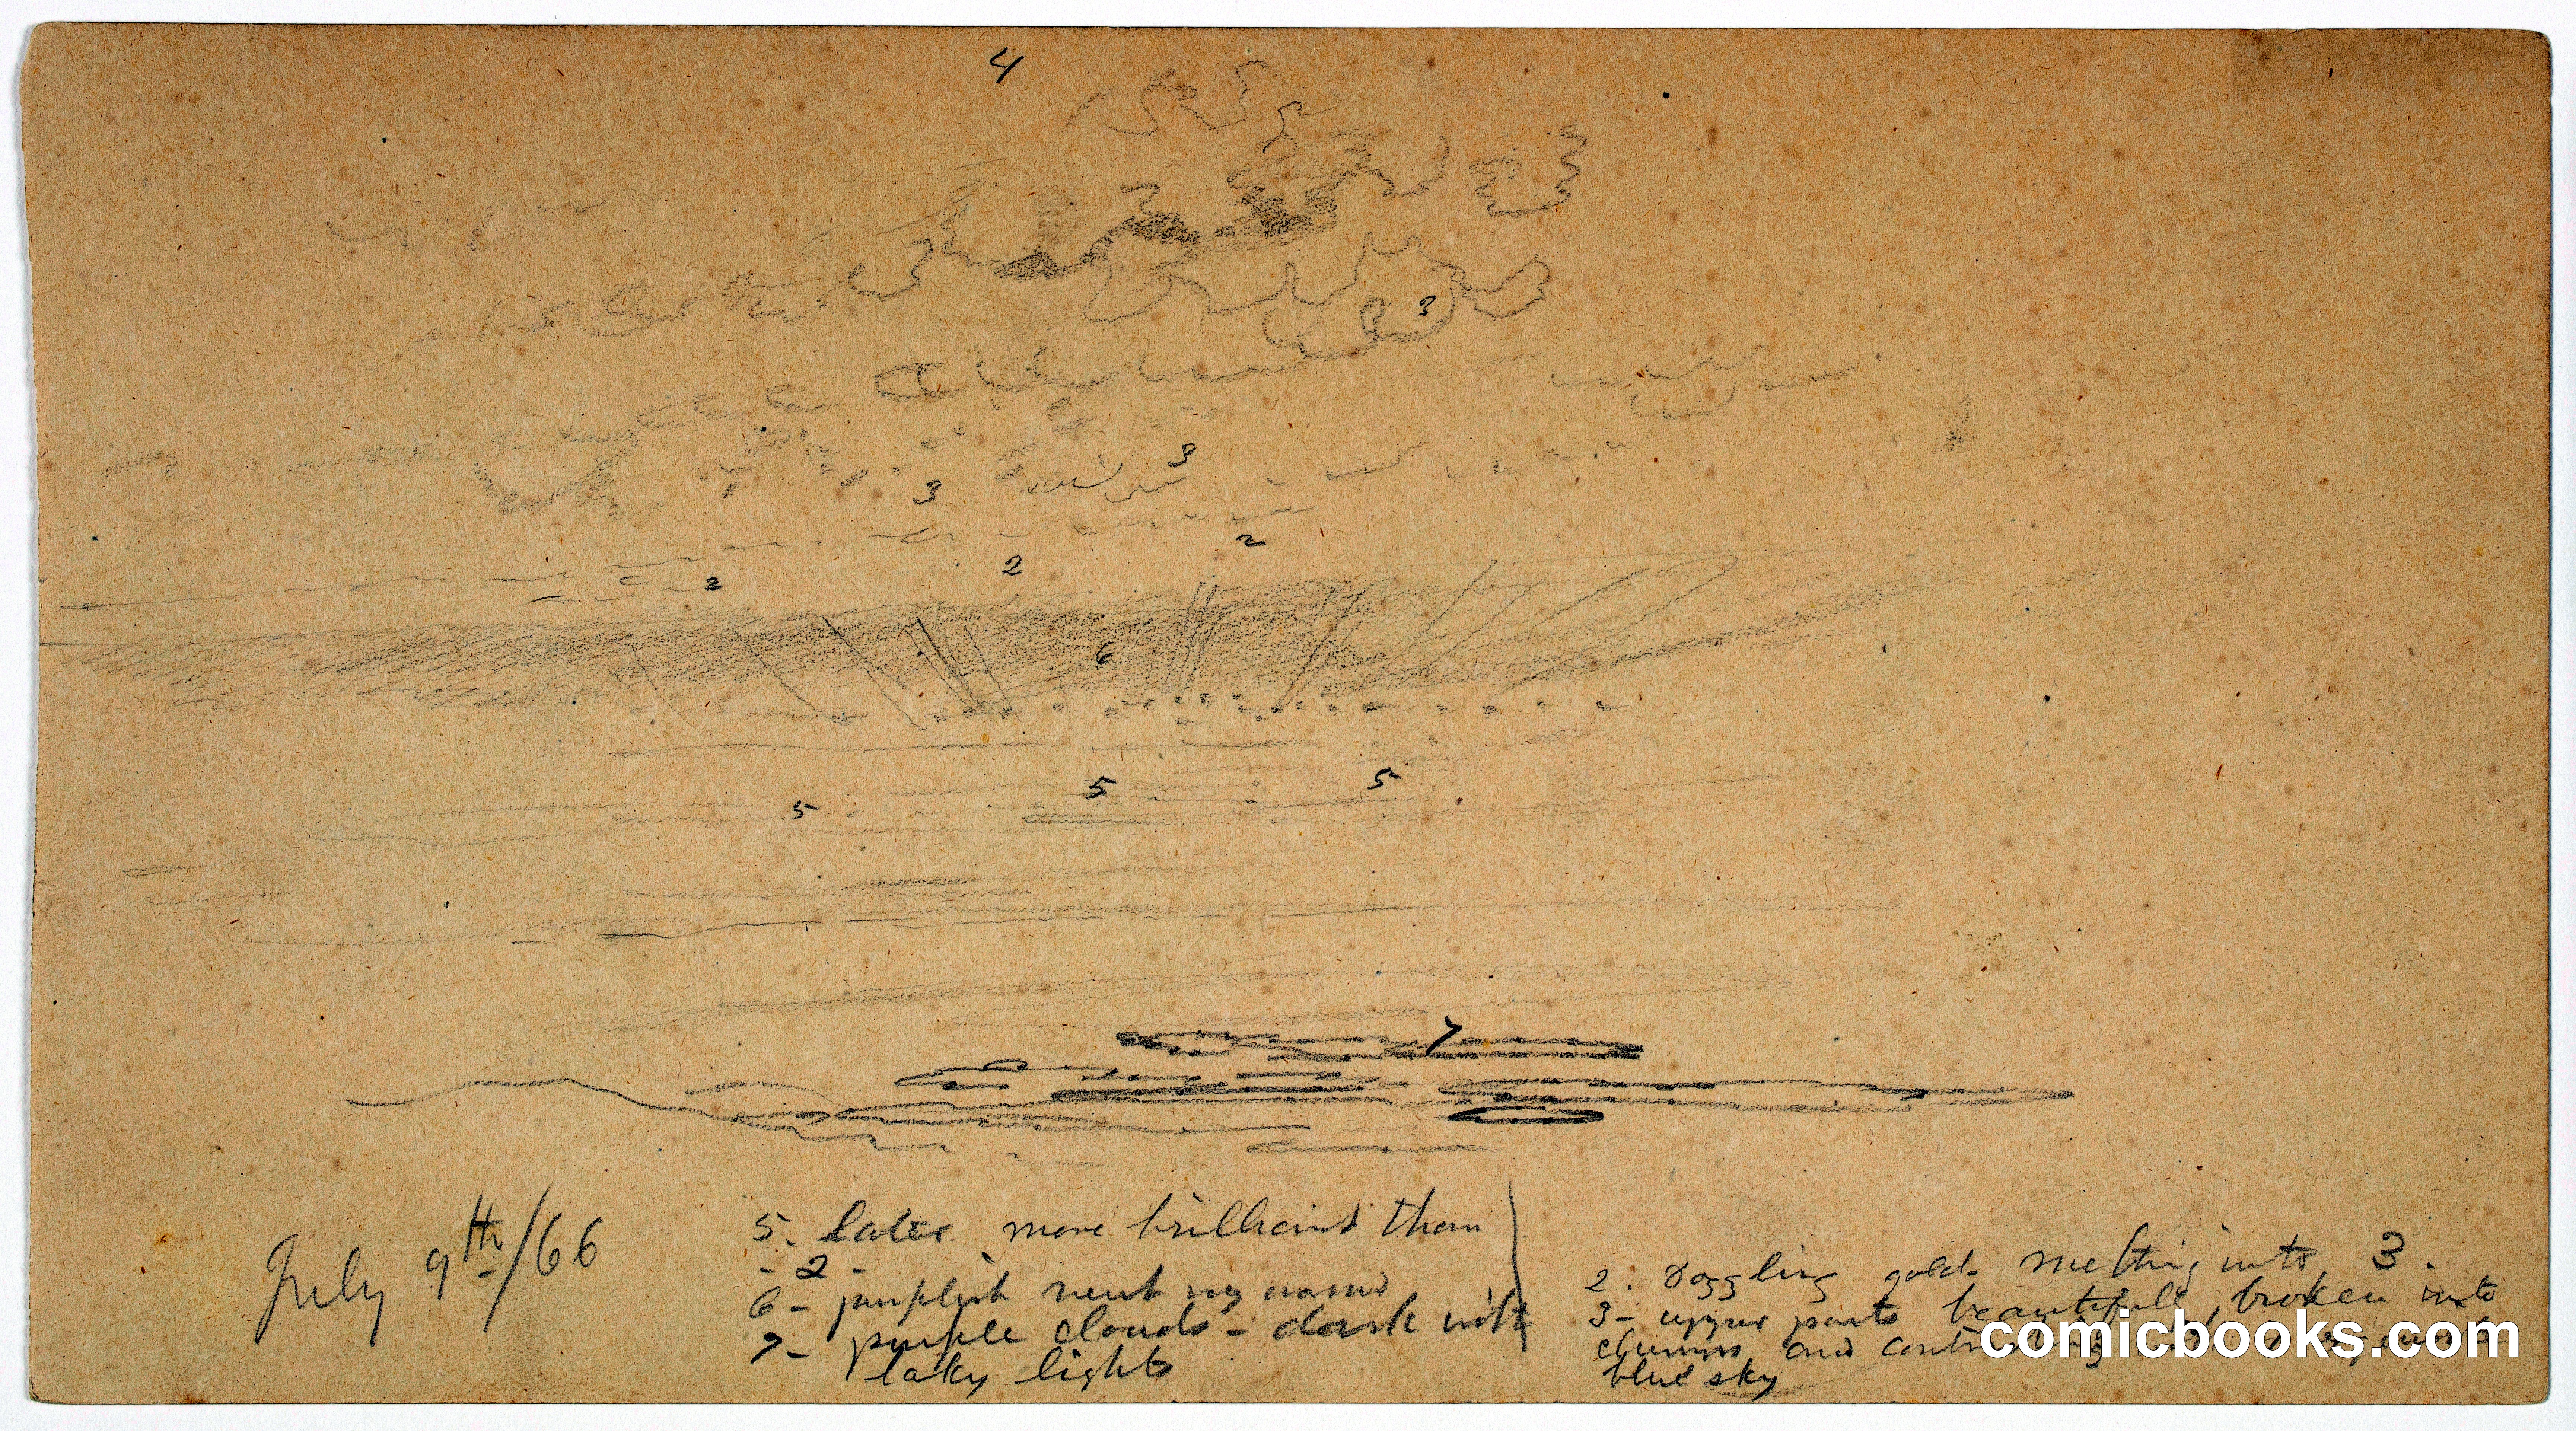 4
3
3
3
2
2
2
6
5
5
5
7
July 9th/66
5. later more brilliant than
- 2 -
6 - purplish
7 - purple clouds - dark with
laky lights
2. Dazzling gold melting into 3.
3 - upper parts beautifull broken into
and
blue sky
comicbooks.com